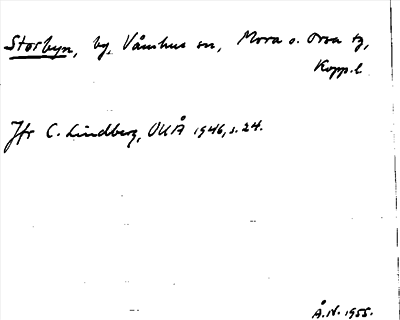 Storbyn, by, Våmhus sn, Mora o. Orsa tg,
Kopp. l
Jfr C. Lindberg, OUÅ 1946, s. 24.
Å.N. 1955.